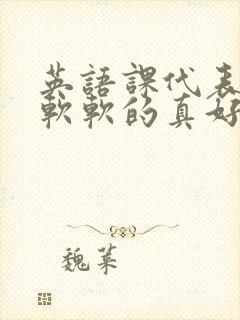 英語課代表
軟軟的真好
魏菓